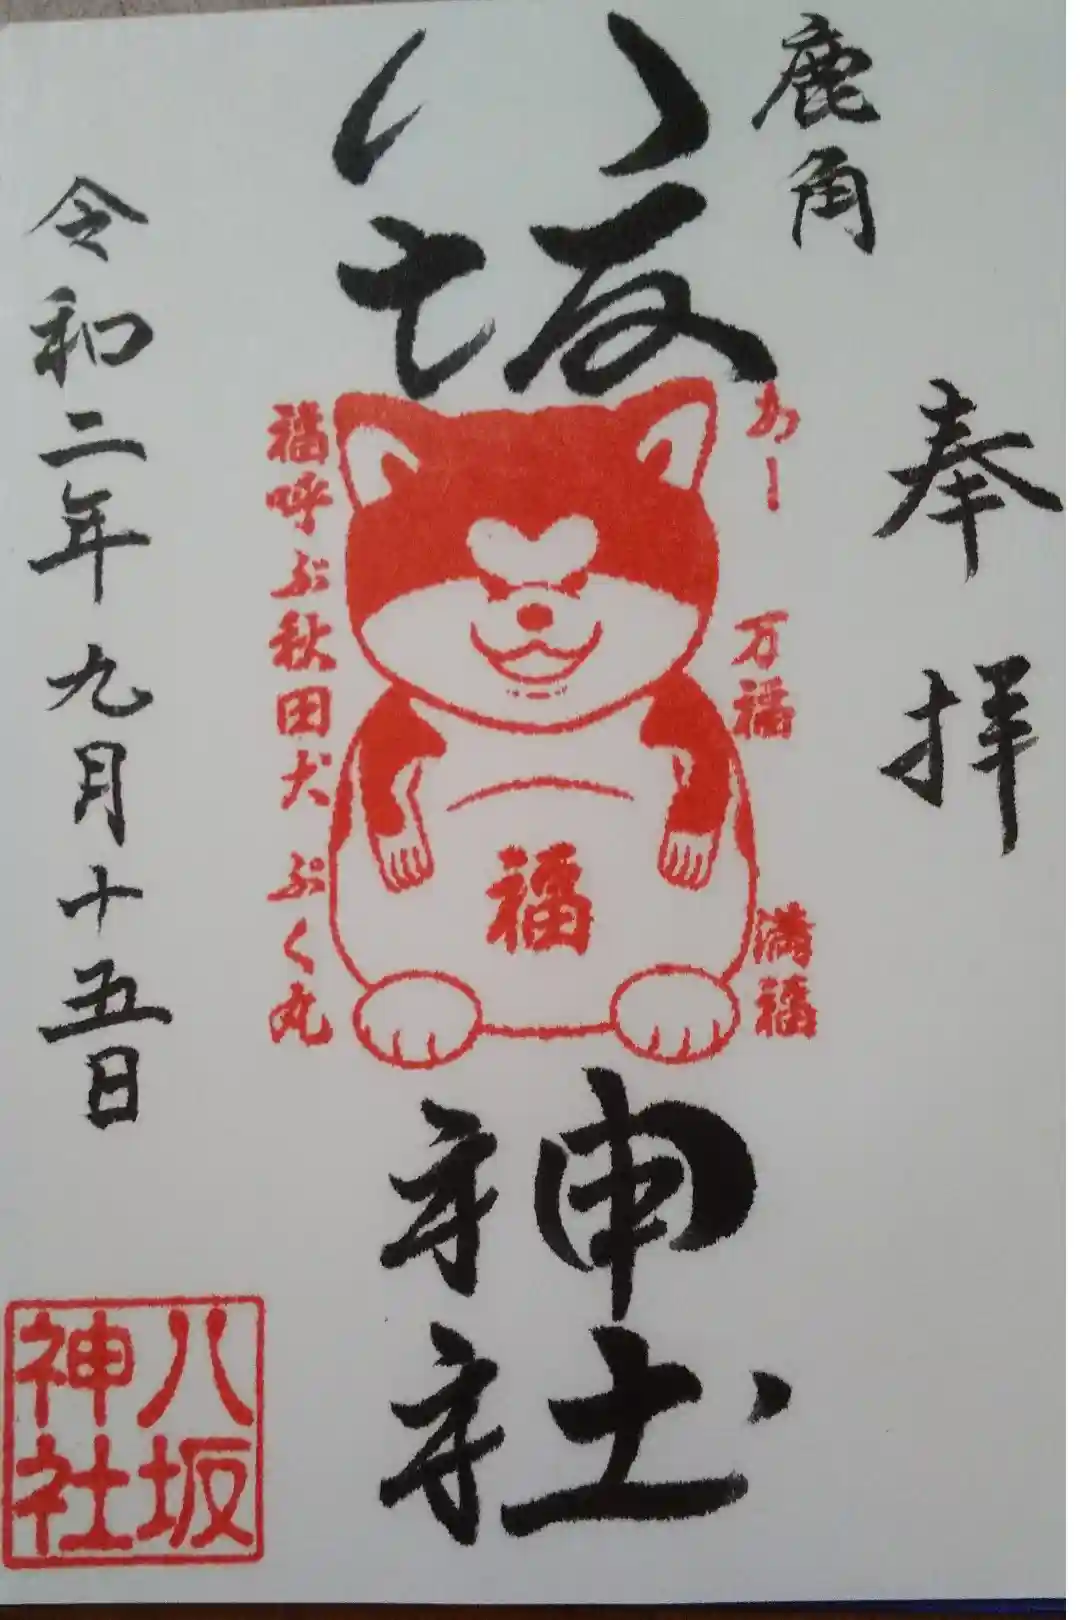 奉拝
鹿角
八坂神社
あー
万福
満福
福
福呼ぶ秋田犬ぷく丸
令和二年九月十五日
八坂
神社